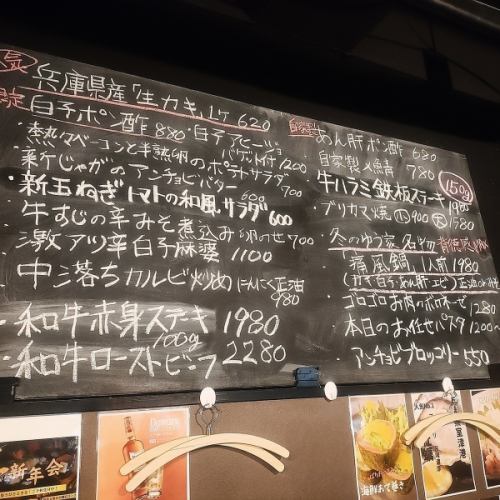 兵庫県産「生カキ」1ケ 620
白子ポン酢 880・白子アヒージョ
バゲット付 1200
・熱々ベーコンと半熟卵のポテトサラダ 700
・新じゃがのアンチョビバター 600
・新玉ねぎトマトの和風サラダ 600
・牛すじの辛みそ煮込み 卵のせ 700
・激アツ辛白子麻婆 1100
・中落ちカルビ炒め にんにく正油 980
・和牛赤身ステーキ 100g 1980
・和牛ローストビーフ 2280
自家製 あん肝ポン酢 680
自家製 燻鯖 780
牛ハラミ鉄板ステーキ 1980
150g
・ブリカマ焼 小900 大1580
・冬のゆう家名物
痛風鍋 1人前 1980
・ゴロゴロお肉のボロネーゼ 1280
・本日のお任せパスタ 1200〜
・アンチョビブロッコリー 550
新年会
海鮮おで巻き